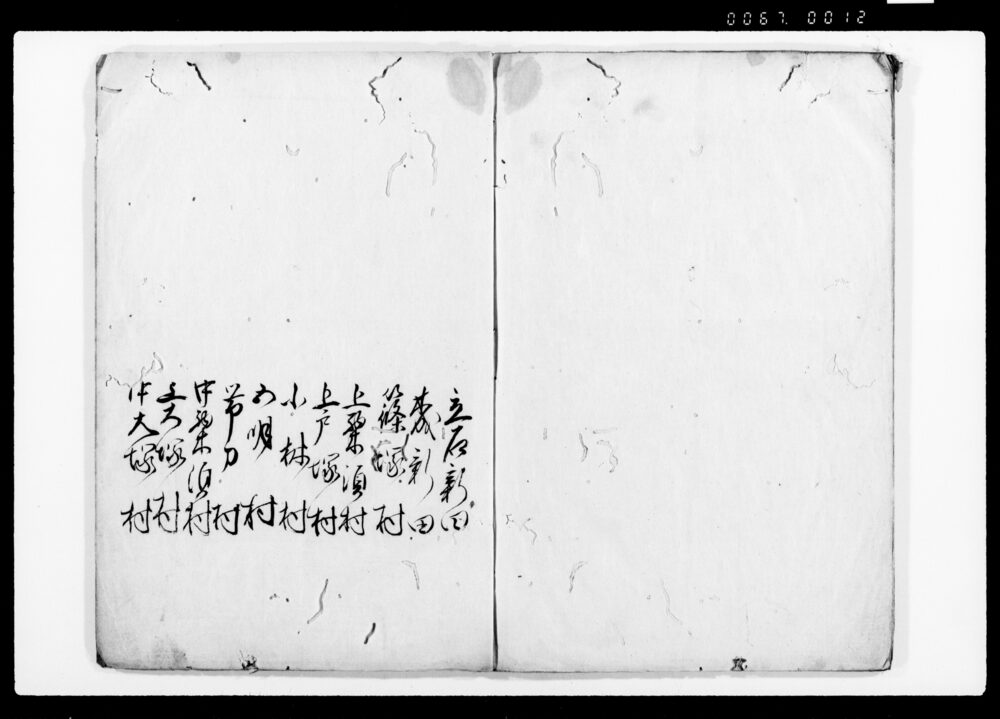 0067. 0012
立石新田
森新田
篠塚村
上栗須村
上戸塚村
小林村
五明村
帯刀村
中栗須村
上大塚村
中大塚村